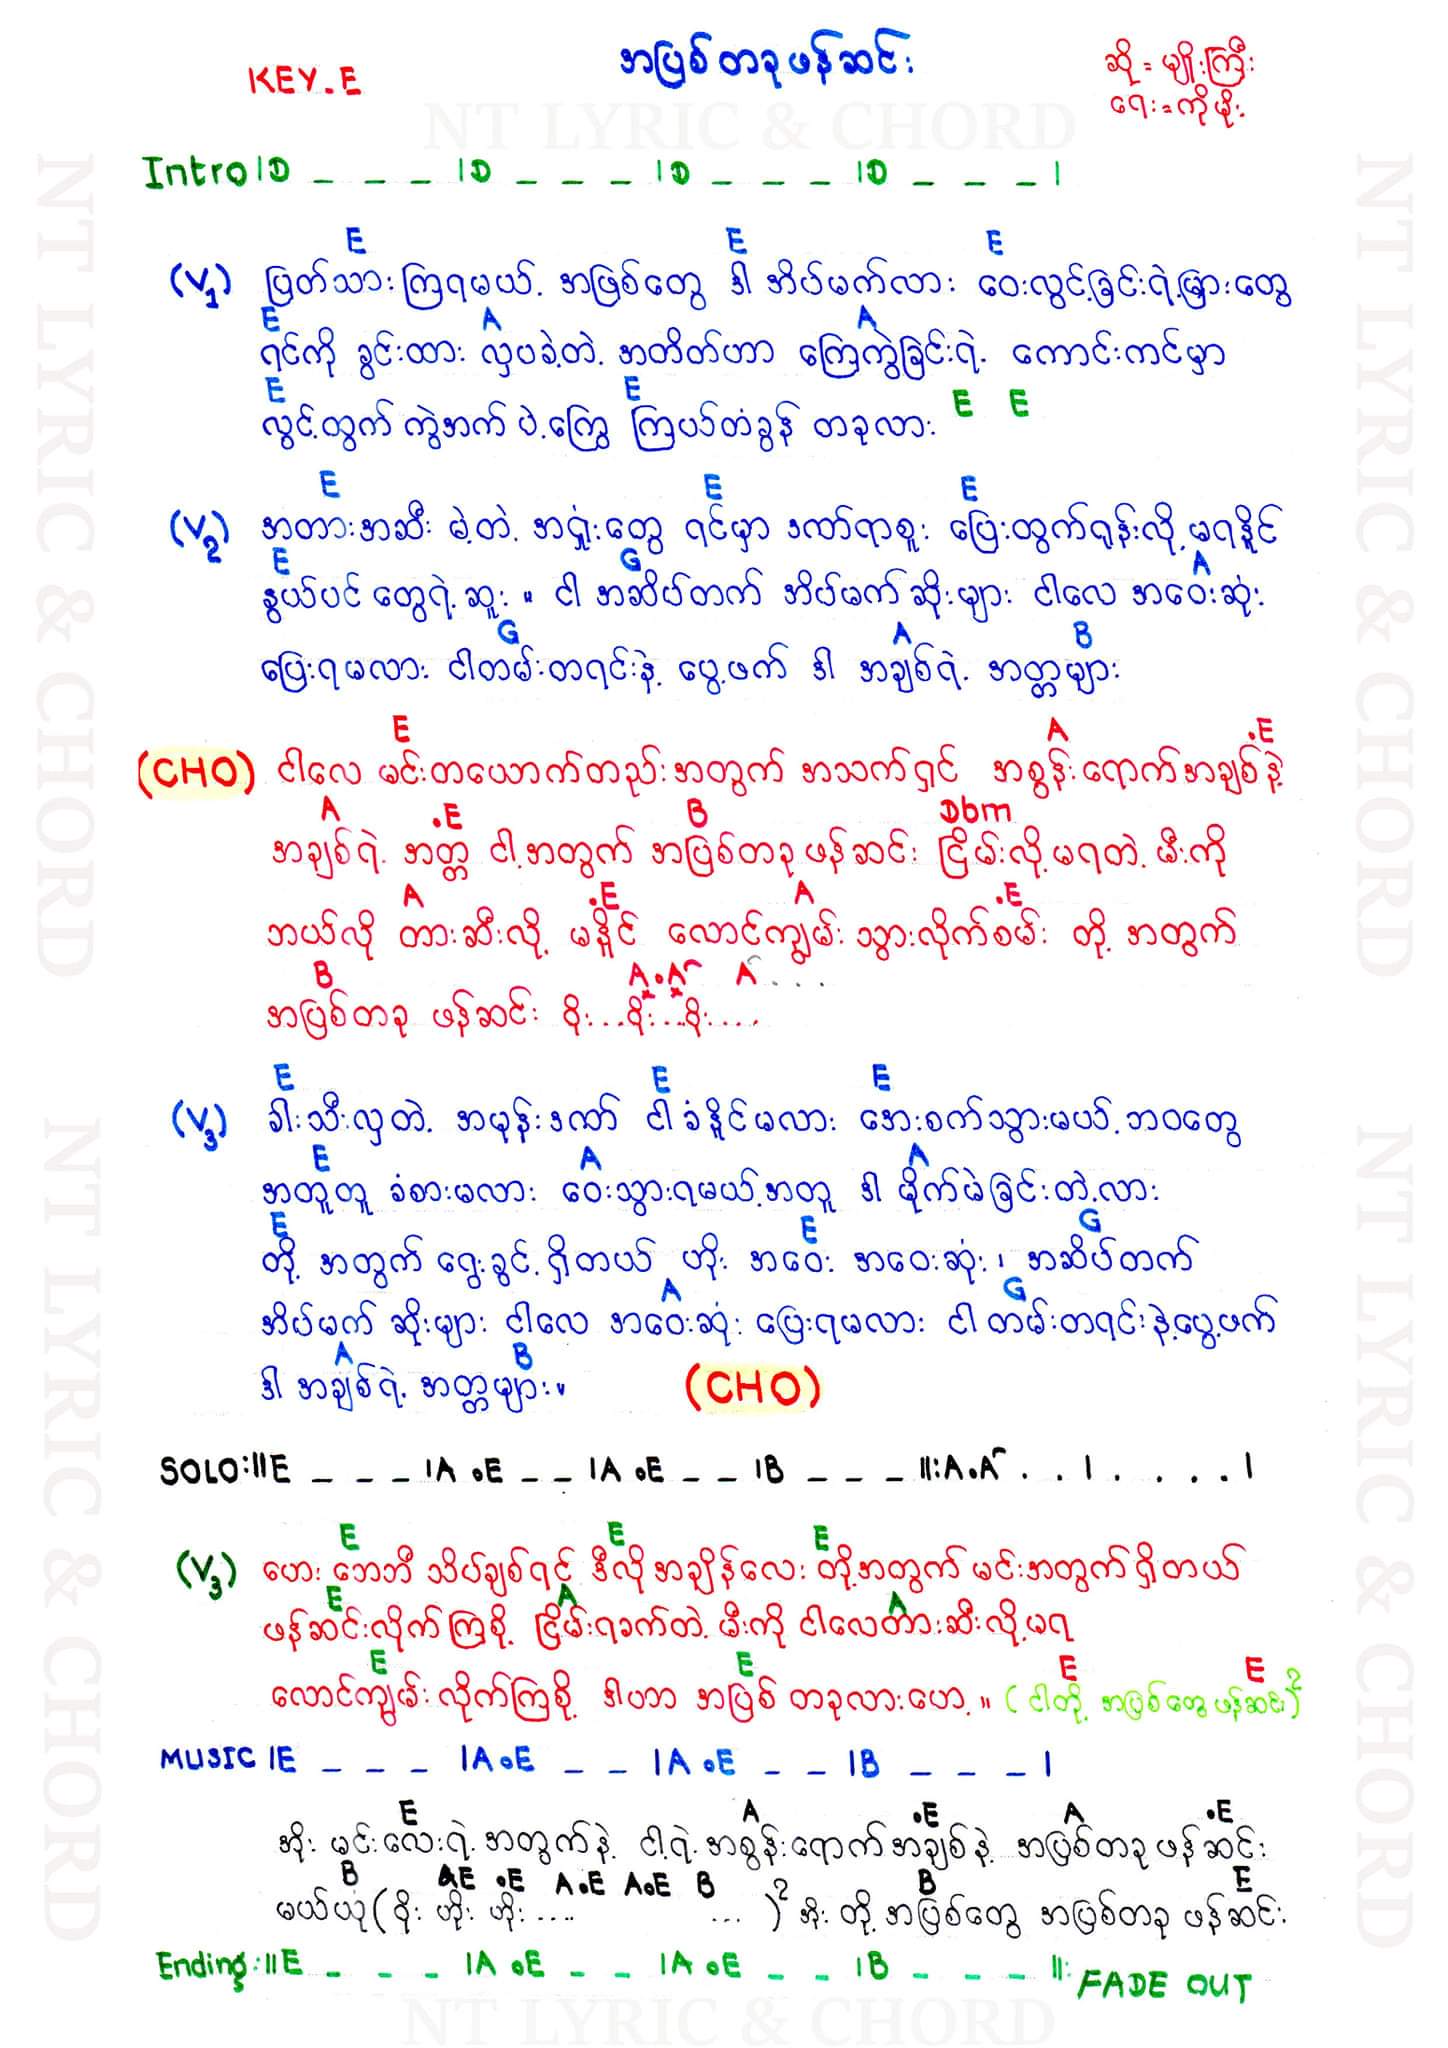 KEY.E
အပြစ်တခုဖန်ဆင်း
ဆို = မျိုးကြီး
ရေး = ကိုမိုး
NT LYRIC & CHORD
Intro |D _ _ _ |D _ _ _ |D _ _ _ |D _ _ _ |
E E E
(V1) ပြတ်သားကြရမယ့် အဖြစ်တွေ ဒါ အိပ်မက်လား ဝေးလွင့်ခြင်းရဲ့မြားတွေ
E A A
ရင်ကို ခွင်းထား လှပခဲ့တဲ့ အတိတ်ဟာ ကြေကွဲခြင်းရဲ့ ကောင်းကင်မှာ
E E E E
လွင့်ထွက် ကွဲအက် ပဲ့ကြွေ ကြယ်တံခွန် တခုလား
E E E
(V2) အတားအဆီး မဲ့တဲ့ အရှုံးတွေ ရင်မှာ ဒဏ်ရာစူး ပြေးထွက်ရုန်းလို့မရနိုင်
E G A
နွယ်ပင်တွေရဲ့ဆူး ။ ငါ အဆိပ်တက် အိပ်မက်ဆိုးများ ငါလေ အဝေးဆုံး
G A B
ပြေးရမလား ငါတမ်းတရင်းနဲ့ ပွေ့ဖက် ဒါ အချစ်ရဲ့ အတ္တများ
E A .E
(CHO) ငါလေ မင်းတယောက်တည်းအတွက် အသက်ရှင် အစွန်းရောက်အချစ်နဲ့
A .E B Dbm
အချစ်ရဲ့ အတ္တ ငါ့အတွက် အပြစ်တခုဖန်ဆင်း ငြိမ်းလို့မရတဲ့ မီးကို
A .E A .E
ဘယ်လို တားဆီးလို့ မနိုင် လောင်ကျွမ်း သွားလိုက်စမ်း တို့ အတွက်
B A.A A . . . .
အပြစ်တခု ဖန်ဆင်း ဝိုး...ဝိုး...ဝိုး....
E E E
(V3) ခါးသီးလှတဲ့ အမုန်းဒဏ် ငါခံနိုင်မလား အေးစက်သွားမယ့်ဘဝတွေ
E A A
အတူတူ ခံစားမလား ဝေးသွားရမယ့်အတူ ဒါ မိုက်မဲခြင်းတဲ့လား
E E G
တို့ အတွက် ရွေးခွင့်ရှိတယ် ဟိုး အဝေး အဝေးဆုံး ၊ အဆိပ်တက်
A G
အိပ်မက် ဆိုးများ ငါလေ အဝေးဆုံး ပြေးရမလား ငါ တမ်းတရင်းနဲ့ပွေ့ဖက်
A B
ဒါ အချစ်ရဲ့ အတ္တများ။ (CHO)
SOLO:||E _ _ _ |A .E _ _ |A .E _ _ |B _ _ _ ||:A.A . . | . . . . |
E E E
(V3) ဟေး ဘေဘီ သိပ်ချစ်ရင့် ဒီလိုအချိန်လေး တို့အတွက် မင်းအတွက်ရှိတယ်
E A A
ဖန်ဆင်းလိုက်ကြစို့ ငြိမ်းရခက်တဲ့ မီးကို ငါလေတားဆီးလို့မရ
E E E E
လောင်ကျွမ်း လိုက်ကြစို့ ဒါဟာ အပြစ် တခုလားဟေ့ ။ (ငါတို့ အပြစ်တွေဖန်ဆင်း)2
MUSIC |E _ _ _ |A .E _ _ |A .E _ _ |B _ _ _ |
E A .E A .E
အိုး မင်းလေးရဲ့အတွက်နဲ့ ငါ့ရဲ့အစွန်းရောက်အချစ်နဲ့ အပြစ်တခုဖန်ဆင်း
B AE .E A.E A.E B B E
မယ်ယုံ(ဝိုး ဟိုး ဟိုး .... ... )2 အိုး တို့အပြစ်တွေ အပြစ်တခု ဖန်ဆင်း
Ending:||E _ _ _ |A .E _ _ |A .E _ _ |B _ _ _ ||: FADE OUT
NT LYRIC & CHORD
NT LYRIC & CHORD
NT LYRIC & CHORD
NT LYRIC & CHORD
NT LYRIC & CHORD